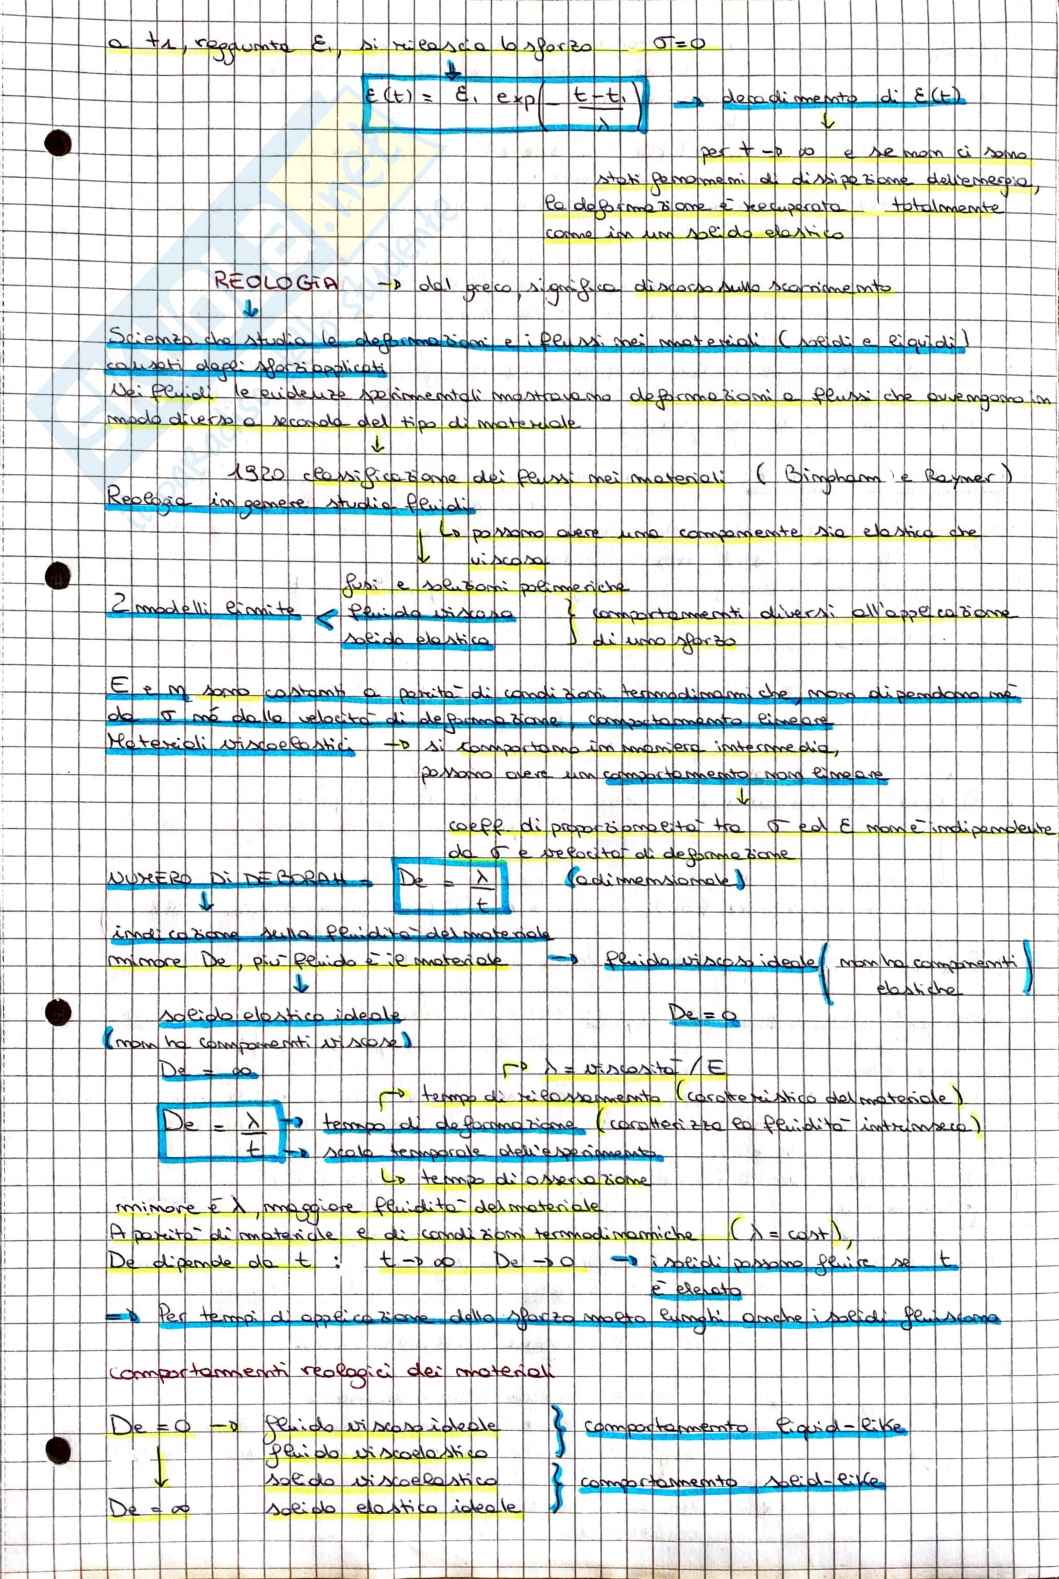 a t1, raggiunta ε1, si rilascia lo sforzo σ=0
ε(t) = ε1 exp(- (t-t1)/λ) → decadimento di ε(t)
per t → ∞ e se non ci sono
stati fenomeni di dissipazione dell'energia,
la deformazione è recuperata totalmente
come in un solido elastico
REOLOGIA → dal greco, significa discorso sullo scorrimento
Scienza che studia le deformazioni e i flussi nei materiali (solidi e liquidi)
causati dagli sforzi applicati
Nei fluidi le evidenze sperimentali mostravano deformazioni o flussi che avvengono in
modo diverso a seconda del tipo di materiale
1920 classificazione dei flussi nei materiali (Bingham e Rayner)
Reologia in genere studia fluidi
↳ possono avere una componente sia elastica che
viscosa
fusi e soluzioni polimeriche
2 modelli limite < fluido viscoso } comportamenti diversi all'applicazione
solido elastico di uno sforzo
E e η sono costanti a parità di condizioni termodinamiche, non dipendono né
da σ né dalla velocità di deformazione, comportamento lineare
Materiali viscoelastici → si comportano in maniera intermedia,
possono avere un comportamento non lineare
coeff. di proporzionalità tra σ ed ε non è indipendente
da σ e velocità di deformazione
NUMERO DI DEBORAH = De = λ/t (adimensionale)
indicazione sulla fluidità del materiale
minore De, più fluido è il materiale → fluido viscoso ideale (non ha componenti
elastiche)
solido elastico ideale De = 0
(non ha componenti viscose)
De = ∞ λ = viscosità / E
tempo di rilassamento (caratteristico del materiale)
De = λ/t → tempo di deformazione (caratterizza la fluidità intrinseca)
→ scala temporale dell'esperimento
↳ tempo di osservazione
minore è λ, maggiore fluidità del materiale
A parità di materiale e di condizioni termodinamiche (λ = cost),
De dipende da t : t→∞ De → 0 → i solidi possono fluire se t
è elevato
⇒ Per tempi di applicazione dello sforzo molto lunghi anche i solidi fluiscono
comportamenti reologici dei materiali
De = 0 → fluido viscoso ideale } comportamento liquid-like
fluido viscoelastico
solido viscoelastico } comportamento solid-like
De = ∞ solido elastico ideale